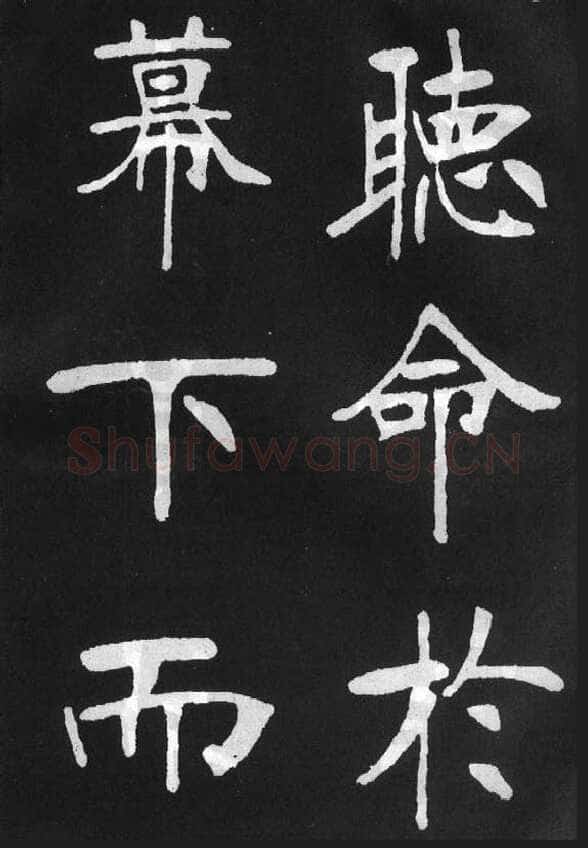 聽命於
幕下而
Shufawang.CN